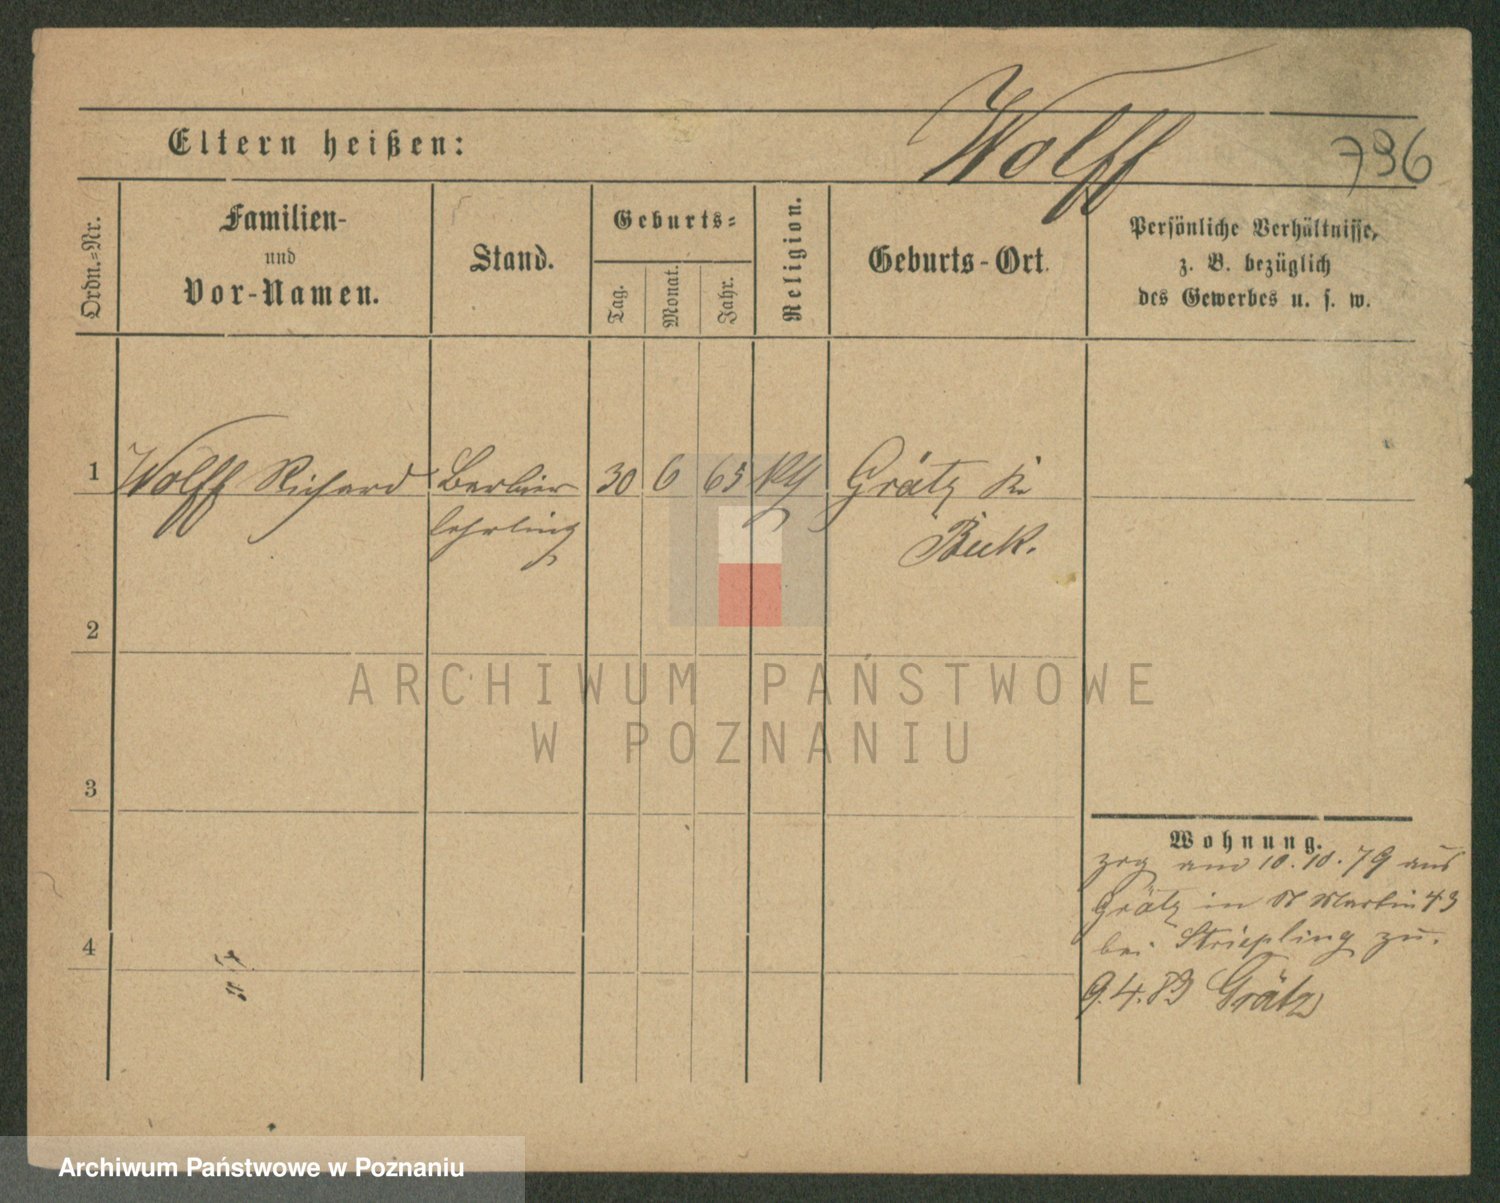 Wolff
796
Eltern heißen:
Ordn.=Nr.
Familien-
und
Vor-Namen.
Stand.
Geburts=
Tag.
Monat.
Jahr.
Religion.
Geburts-Ort.
Persönliche Verhältnisse,
z. B. bezüglich
des Gewerbes u. s. w.
1
Wolff Richard
Barbier
lehrling
30
6
65
Grätz
Buk.
2
3
4
Wohnung.
zog am 10.10.79 aus
Grätz in St Martin 43
bei Striepling zu.
9.4.83 Grätz
ARCHIWUM PAŃSTWOWE
W POZNANIU
Archiwum Państwowe w Poznaniu